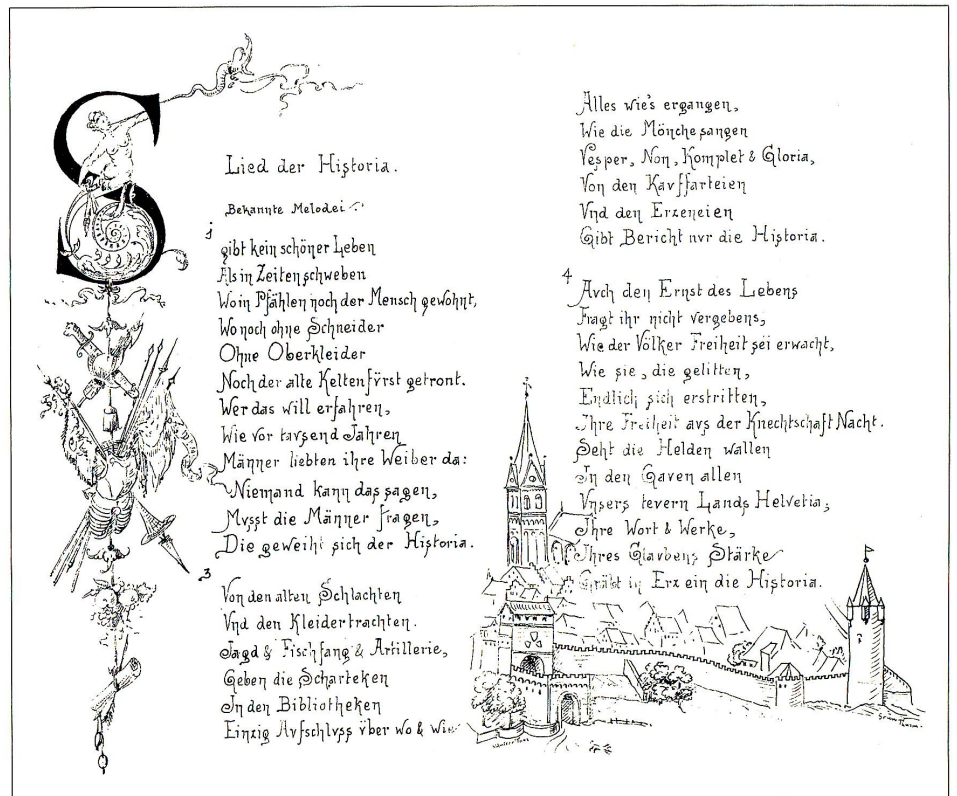 S
Lied der Historia.
Bekannte Melodei
1
gibt kein schöner Leben
Als in Zeiten schweben
Wo in Pfählen noch der Mensch gewohnt,
Wo noch ohne Schneider
Ohne Oberkleider
Noch der alte Keltenfvrst getront.
Wer das will erfahren,
Wie vor tavsend Jahren
Männer liebten ihre Weiber da:
Niemand kann das sagen,
Mvsst die Männer fragen,
Die geweiht sich der Historia.
3
Von den alten Schlachten
Vnd den Kleidertrachten.
Jagd & Fischfang & Artillerie,
Geben die Scharteken
In den Bibliotheken
Einzig Avfschlvss vber wo & wie
Alles wie's ergangen,
Wie die Mönche sangen
Vesper, Non, Komplet & Gloria,
Von den Kavffarteien
Vnd den Erzeneien
Gibt Bericht nvr die Historia.
4
Avch den Ernst des Lebens
Fragt ihr nicht vergebens,
Wie der Völker Freiheit sei erwacht,
Wie sie, die gelitten,
Endlich sich erstritten,
Ihre Freiheit avs der Knechtschaft Nacht.
Seht die Helden wallen
In den Gaven allen
Vnsers tevern Lands Helvetia,
Ihre Wort & Werke,
Ihres Glavbens Stärke
Gräbt in Erz ein die Historia.